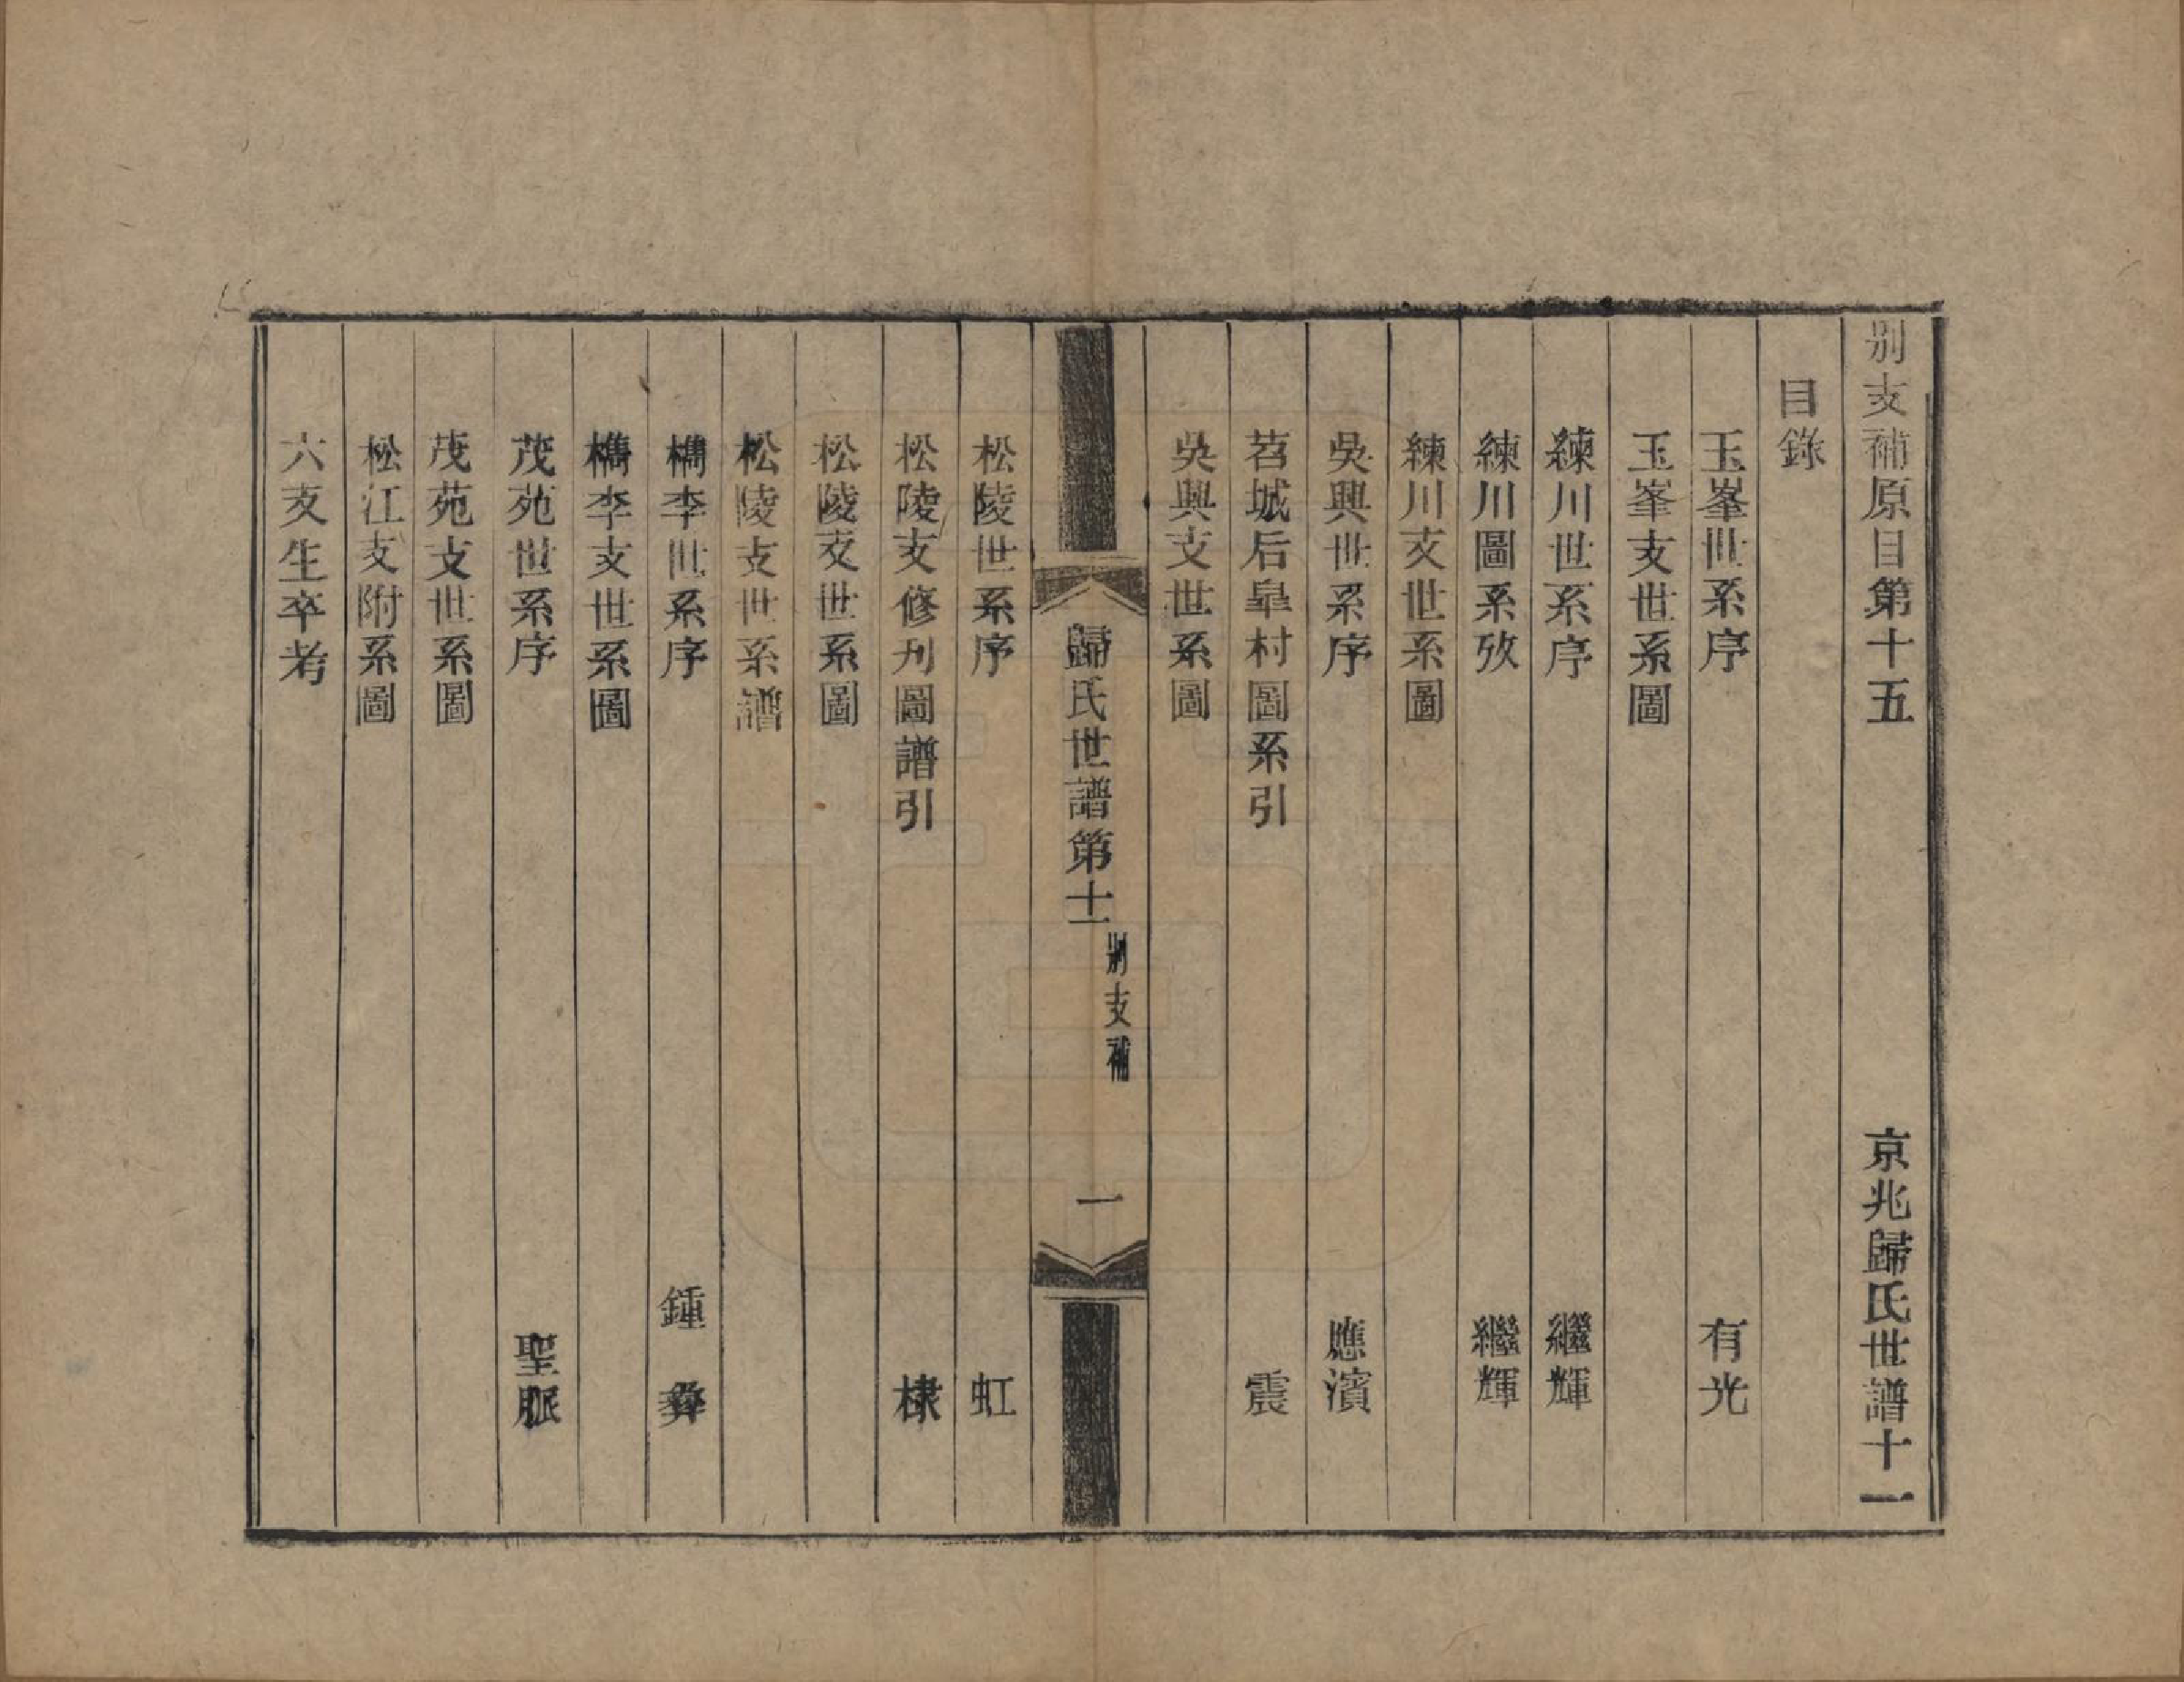 別支補原目第十五　京兆歸氏世譜十一
目錄
玉峯世系序　有光
玉峯支世系圖
練川世系序　繼輝
練川圖系攷　繼輝
練川支世系圖
吳興世系序　應濱
苕城后皐村圖系引　震
吳興支世系圖
歸氏世譜第十一　別支補　一
松陵世系序　虹
松陵支修刋圖譜引　棣
松陵支世系圖
松陵支世系譜
檇李世系序　鍾彝
檇李支世系圖
茂苑世系序　聖脈
茂苑支世系圖
松江支附系圖
六支生卒考